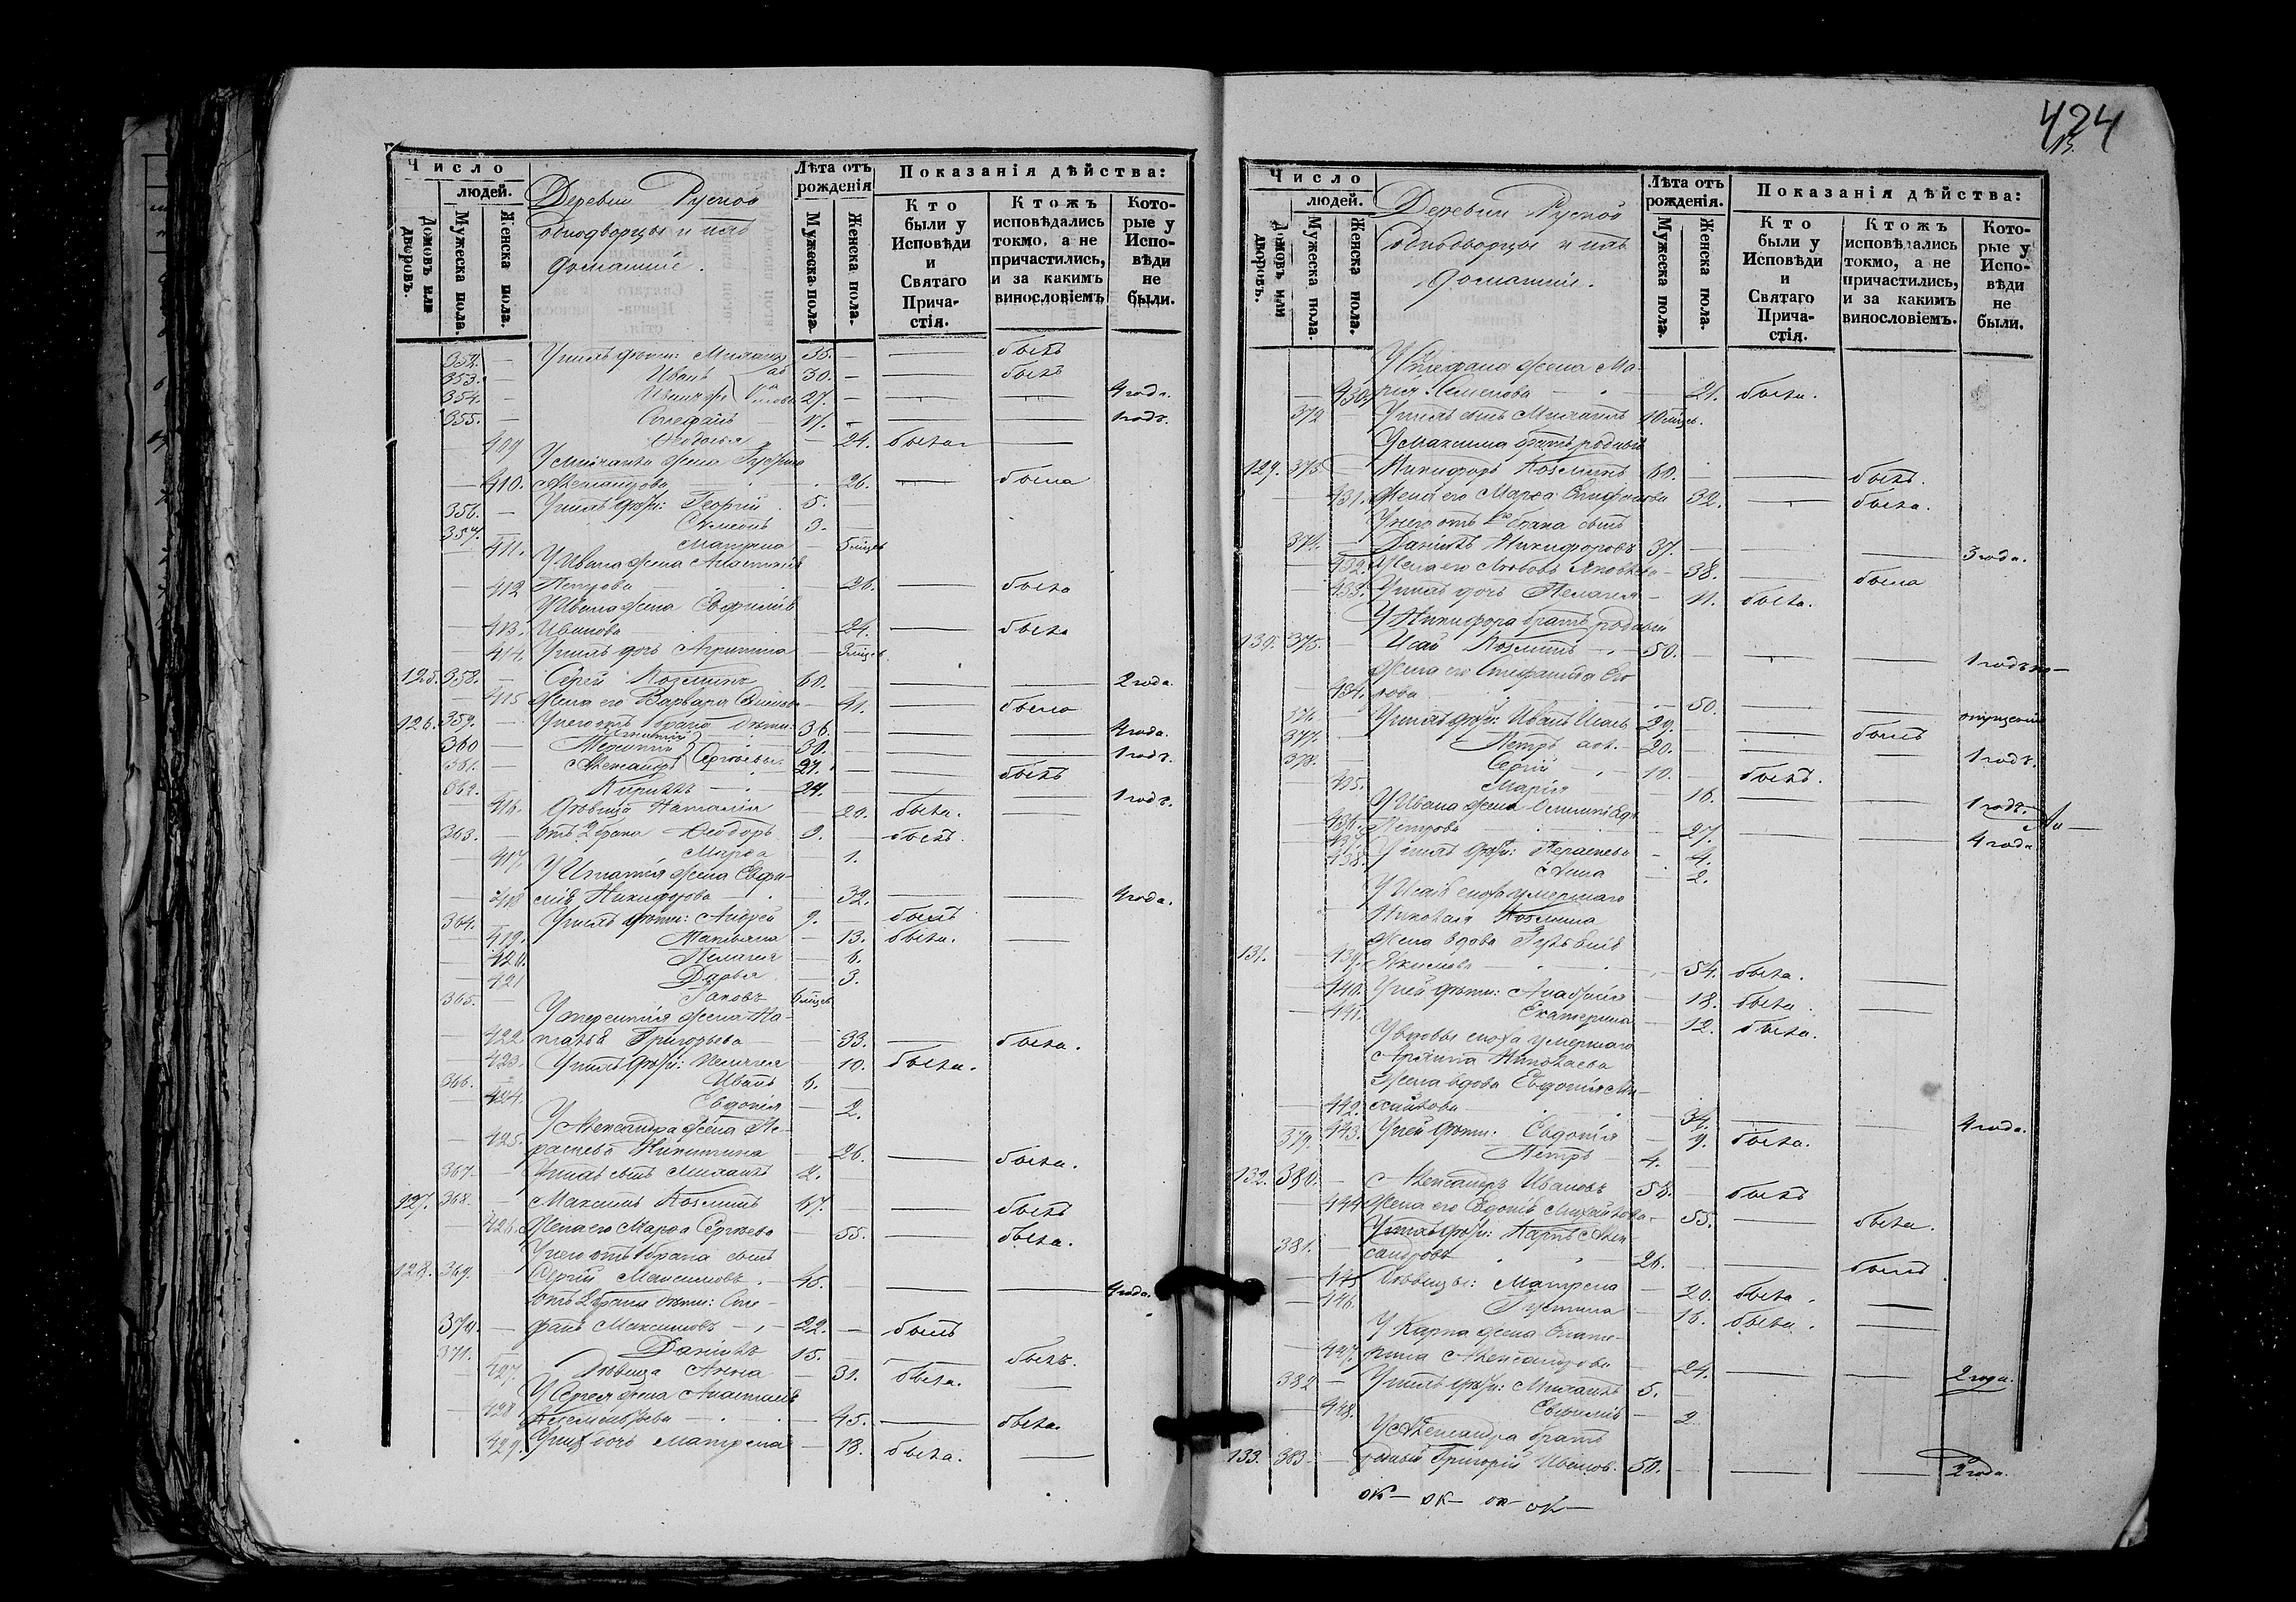 424
Число
людей.
Домовъ или дворовъ.
Мужеска пола.
Женска пола.
Деревни Руской
однодворцы и ихъ
домашние.
Лѣта отъ рожденія
Мужеска пола.
Женска пола.
Показанія дѣйства:
Кто были у Исповѣди и Святаго Прича-стія.
Ктожъ исповѣдались токмо, а не причастились, и за какимъ винословіемъ
Кото-рые у Испо-вѣди не были.
352. — У нихъ дѣти: Михаилъ 35. — — былъ
353. — Иванъ 30. — — былъ
354. — 27. — — — 4 года.
355. — Стефанъ — — — 1 годъ.
409 Ѳедосья — 24. была —
У Михаила жена
410. Александрова 26. — была
356. — У нихъ дѣти: Георгий 5. —
357. — Симеонъ 3. —
411. Матрена — 6 мцев
У Ивана жена Анастасия
412 Петрова 26. — была
У Ивана жена Евфимия
413. Иванова 24. — была
414. У нихъ дочь Агрипина — 3 мцев
125. 358. — Сергий Козминъ 60. — — — 2 года
415 жена его Варвара 41. — была
126. 359. — У него отъ 1 брака дѣти: Игнатий 36. — — — 4 года.
360 Терентий 30. — — — 1 годъ.
361. — Александръ Сергиевы 27. — — былъ
362. Кирилъ — 24. — — — 1 годъ.
416. дѣвица Наталия — 20. была. —
363. — отъ 2 брака Ѳеодоръ 9. — былъ.
417. Марѳа — 1.
У Игнатия жена Евфи-
418 мия Никифорова — 32. — — 4 года.
364. У нихъ дѣти: Андрей 9. — былъ —
419. Татьяна — 13. была. —
420. Пелагея — 6.
421 Дарья — 3.
365. — Іаковъ 6 мцев
У Терентия жена На-
422. талья Григорьева — 33. — была.
423. У нихъ дѣти: Пелагея — 10. была.
366. — Иванъ 6. —
424. Евдокия — 2.
У Александра жена Па-
425. раскева Никитина — 26. — была.
367. — У нихъ сынъ Михаилъ 2. —
127. 368. — Максимъ Козминъ 67. — былъ
426. жена его Марѳа Сергиева — 55. — была.
У него отъ 1 брака сынъ
128. 369. Сергий Максимовъ 45. — — — 4 года.
отъ 2 брака дѣти: Сте-
370. — фанъ Максимовъ 22. — былъ
371. — Даниилъ 15. — былъ.
427. дѣвица Анна — 31. была. —
У Сергея жена Анастасия
428 — 45. — была.
429. У нихъ дочь Матрена — 13. была. —
Число
людей.
Домовъ или дворовъ.
Мужеска пола.
Женска пола.
Деревни Руской
однодворцы и ихъ
домашние.
Лѣта отъ рожденія.
Мужеска пола.
Женска пола.
Показанія дѣйства:
Кто были у Исповѣди и Святаго Прича-стія.
Ктожъ исповѣдались токмо, а не причастились, и за какимъ винословіемъ.
Кото-рые у Испо-вѣди не были.
У Стефана жена Ма-
430. рия Семенова — 21. была.
372 У нихъ сынъ Михаилъ 10 мцев.
У Максима братъ родный
129. 373. Никифоръ Козминъ 60. — былъ.
431. жена его Марѳа 32. — была.
У него отъ 1го брака сынъ
374. — Даниилъ Никифоровъ 37. — — — 3 года.
432. жена его Любовь Яковлева — 38. — была
433. У нихъ дочь Пелагея — 11. была.
У Никифора братъ родный
130. 375. — Исай Козминъ 50. — — — 1 годъ
жена его Стефанида Его-
434. рова — 50. — —
376. — У нихъ дѣти: Иванъ Исаевъ 29. — былъ
377. Петръ 20. — — — 1 годъ.
378. Сергий 10. — былъ.
435. Мария — 16. — — 1 годъ.
У Ивана жена
436. Петрова — 27. — — 4 года
437. У нихъ дѣти: Параскева — 4.
438. Анна — 2.
У Исая сноха умершаго
Николая Козмина
жена вдова
131. — 439. Якимова — 54. была. —
440. У ней дѣти: — 18. была. —
441. Екатерина — 12. была.
У вдовы сноха умершаго
Архипа Николаева
жена вдова Евдокия Ми-
442. хайлова — 34. — — 4 года.
443. У ней дѣти: Евдокия — 9. была.
379. Петръ 4. —
132. 380. — Александръ Ивановъ 58. — былъ
444 жена его Евдокия Михайлова — 55. — была.
У нихъ дѣти: Карпъ Алек-
381. — сандровъ 26. — былъ
445 дѣвицы: Матрена — 20. была. —
446. Иустина — 16. была. —
У Карпа жена Екате-
447. рина Александрова — 24. — — 2 года.
382 — У нихъ дѣти: Михаилъ 5. —
448. Евфимия — 2
У Александра братъ
133. 383 — родный Григорий Иванов. 50. — — — 2 года.